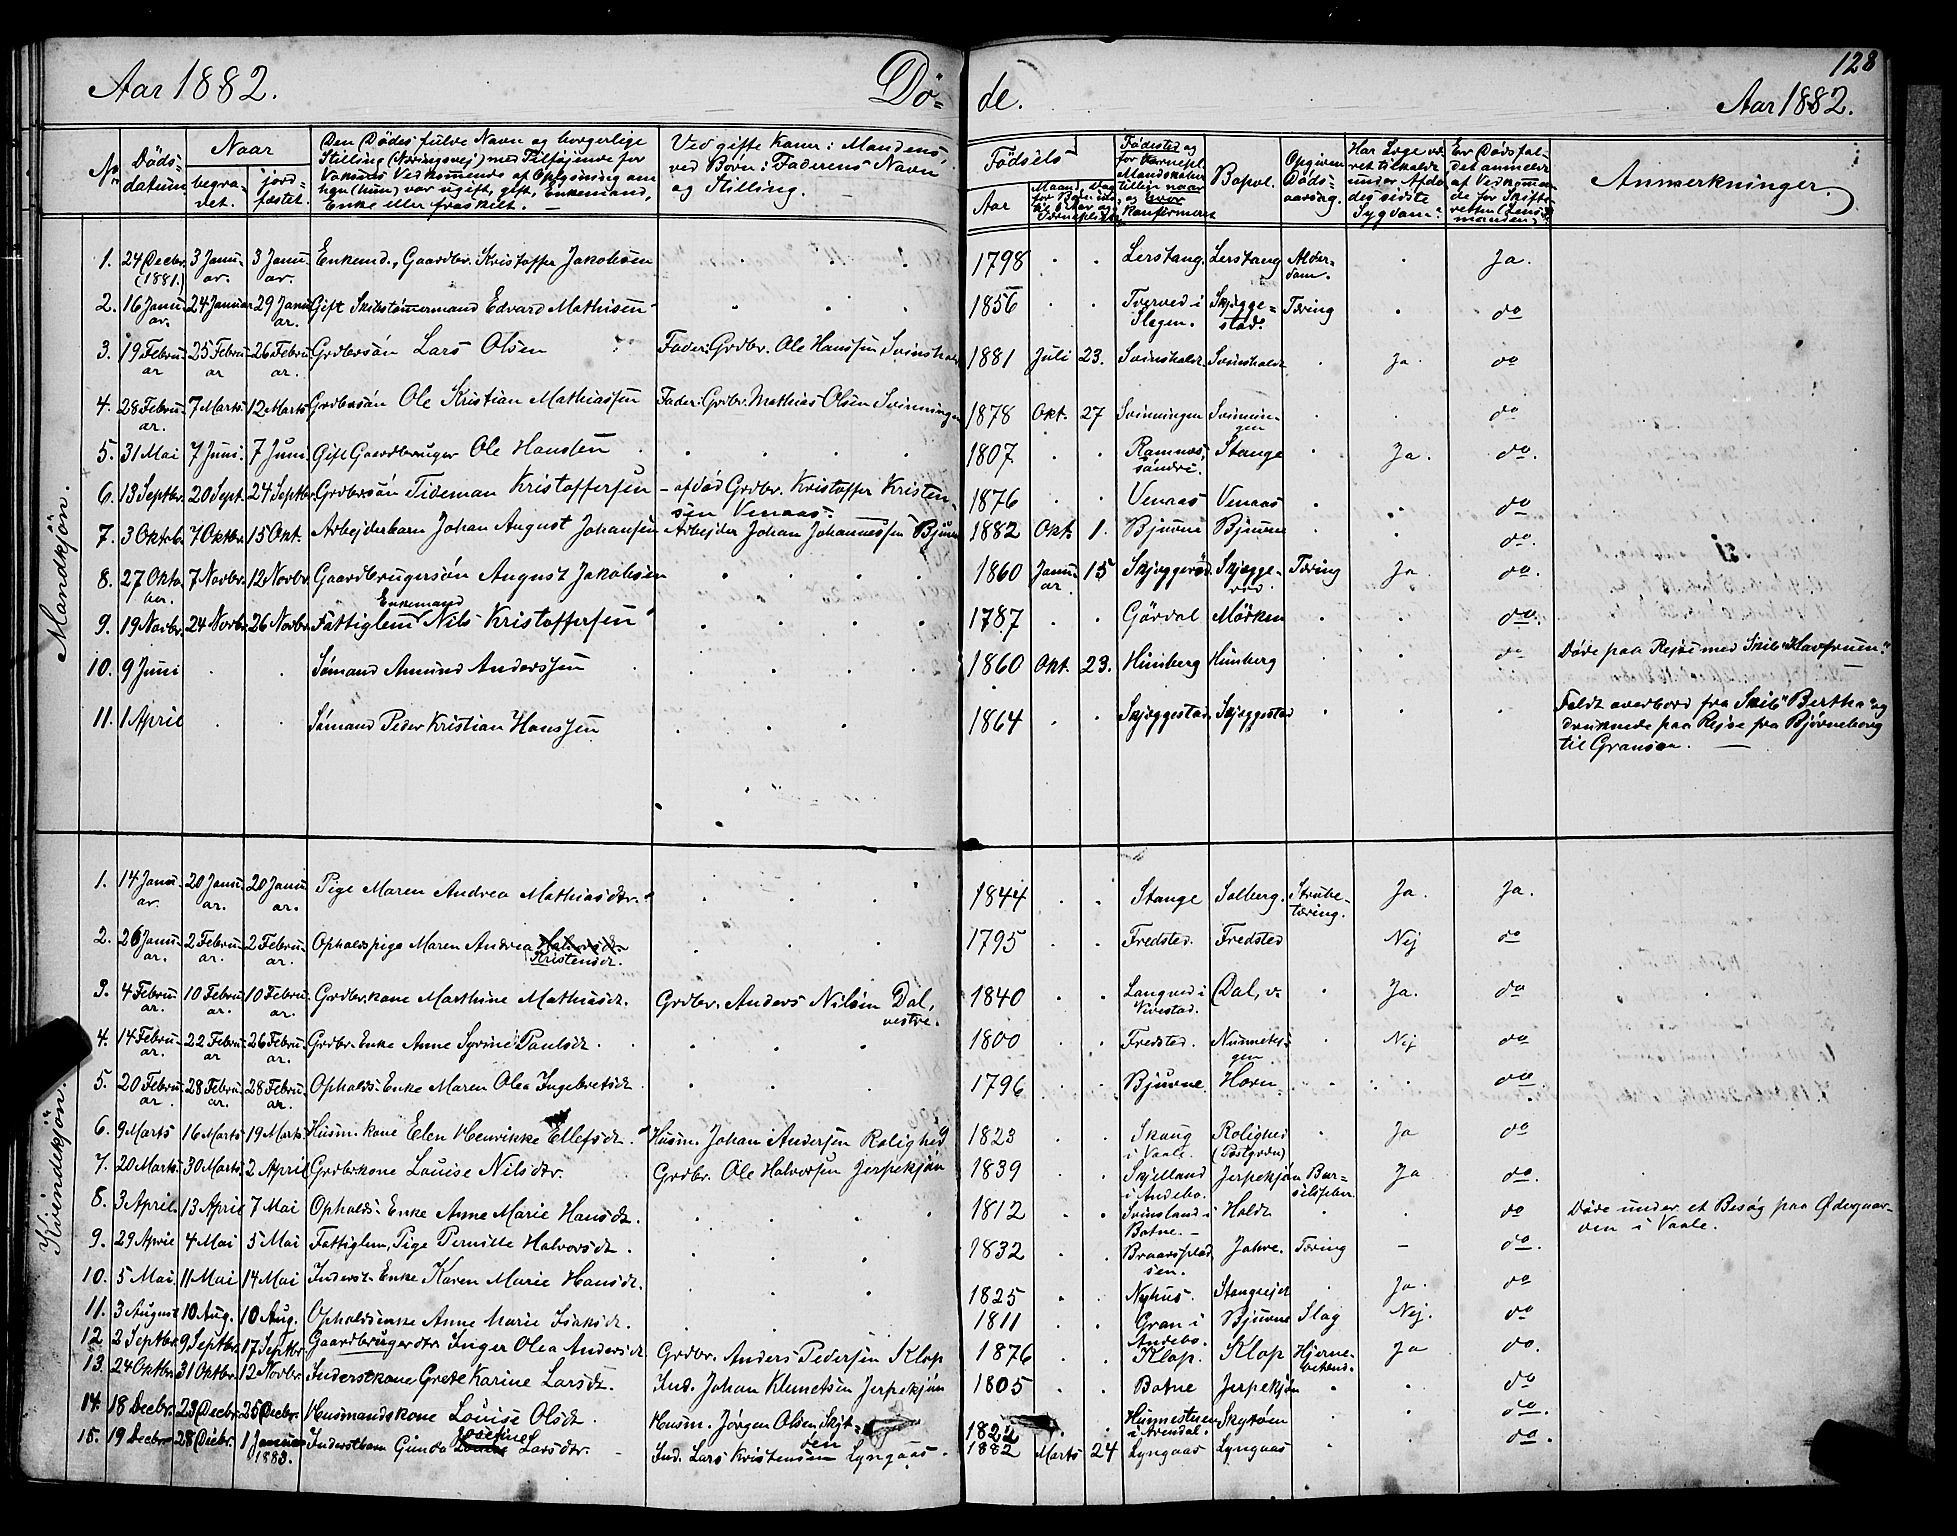 128
Aar 1882. Dö- de. Aar 1882.
No. Döds- datum Naar begra- vet. jord- fæstet. Den Dødes fulde Navn og borgerlige Stilling (Næringsvej) med Tilføjende for Voksnes Vedkommende af Oplysning om han (hun) var ugift, gift, Enkemand, Enke eller fraskilt. Ved gifte Koner: Mandens, ved Börn: Faderens Navn og Stilling. Födsels Aar Födested og Bopæl. Opgiven Döds- aarsag. Har Læge været tilkaldt under Afdødes sidste Sygdom? Er Dödsfaldet anmeldt af Vedkommende for Skifteretten (Lensmanden)? Anmerkninger.
Mandkjön.
1. 24 Decbr. (1881.) 3 Januar. 3 Januar. Enkemd., Gaardbr. Kristoffer Jakobsen 1798 Lerstang. Lerstang Alderdom. Ja.
2. 16 Januar. 24 Januar 29 Januar. Gift Skibstømermand Edvard Mathisen 1856 Tverved i Slagen. Skjeggestad. Tæring do
3. 19 Februar 25 Februar 26 Februar. Grdbrsön Lars Olsen Fader: Grdbr. Ole Hanssen Svinsholt 1881 Juli 23. Svinsholt. Svinsholt Ja. do
4. 28 Februar. 7 Marts. 12 Marts Grdbrsön Ole Kristian Mathiassen Fader: Grdbr. Mathias Olsen Svinningen 1878 Okt. 27 Svinningen Svinningen do
5. 31 Mai 7 Juni. 7 Juni. Gift Gaardbruger Ole Hansen 1807. Ramnes, söndre. Stange Ja. do.
6. 13 Septbr. 20 Sept. 24 Septbr. Grdbrsön Tideman Kristoffersen - afdød Grdbr. Kristoffer Kristensen Venaas. 1876 Venaas Venaas do
7. 3 Oktbr. 7 Oktbr. 15 Okt. Arbejderbarn Johan August Johansen Arbejder Johan Johannessen Bjuerne 1882 Okt. 1. Bjuerne Bjuerne do.
8. 27 Oktober. 7 Novbr. 12 Novbr. Gaardbrugersön August Jakobsen 1860 Januar 15 Skjeggeröd. Skjeggeröd Tæring Ja do.
9. 19 Novbr. 24 Novbr. 26 Novbr. Fattiglem Enkemand Nils Kristoffersen 1787 Gördal Mörken do.
10. 9 Juni Sømand Amund Anderssen 1860 Okt. 23. Himberg Himberg do Døde paa Rejse med Skib "Havfruen."
11. 1 April Sømand Peder Kristian Hanssen 1864 Skjeggestad. Skjeggestad Faldt overbord fra Skib "Bertha" og druknede paa Rejse fra Bjørneborg til Granton.
Kvindekjön.
1. 14 Januar. 20 Januar. 20 Januar. Pige Maren Andrea Mathiasdtr. 1844 Stange Solberg. Strubetæring. Ja. Ja.
2. 26 Januar. 2 Februar. 2 Februar. Opholdspige Maren Andrea Halvorsdtr. Kristensdt. 1795 Fredsted. Fredsted Nej do
3. 4 Februar. 10 Februar. 10 Februar. Grdbr.kone Marthine Mathisdt. Grdbr. Anders Nilsen Dal, vestre. 1840 Langved i Vivestad. Dal, v. Ja. do
4. 14 Februar. 22 Februar 26 Februar. Grdbr. Enke Anne Syrine Paulsdt. 1800 Fredsted. Nej do
5. 20 Februar. 28 Februar. 28 Februar. Opholds-Enke Maren Olea Ingebretsdt. 1796 Bjuerne. Horn do.
6. 9 Marts 16 Marts 19 Marts. Husm. kone Elen Henrikke Ellefsdt. Husm. Johan Andersen Rolighed 1823 Skaug i Vaale. Rolighed Ja do
7. 20 Marts. 30 Marts. 2 April Grdbrkone Louise Nilsdtr. Grdbr. Ole Halvorsen Jerpekjøn 1839 Skjelland i Andebo. Jerpekjøn Barselfeber. Ja do.
8. 3 April. 13 April 7 Mai Opholds-Enke Anne Marie Hansdt. 1812 Svinsland i Botne. Holdt do Døde under et Besøg paa Ødegaarden i Vaale.
9. 29 April 4 Mai 5 Mai Fattiglem, Pige Pernille Halvorsdt. 1832 Braarspladsen. Jahre. Tæring do.
10. 5 Mai 11 Mai 14 Mai Inderst-Enke Karen Marie Hansdt. 1825 Nyhus. Stangeejet Ja. do
11. 3 August 10 Aug. 10 Aug. Opholdsenke Anne Marie Isaksdt. 1811 Gran i Andebo. Bjuerne Slag Nej. do
12. 2 Septbr. 9 Septbr. 17 Septbr. Gaardbrugerdtr Inger Olea Andersdt Grdbr. Anders Pedersen Klop 1876 Klop. Klop Hjernebetænd. Ja do.
13. 24 Oktbr. 31 Oktbr. 12 Novbr. Inderstkone Grete Karine Larsdt. Ind. Johan Klemetsen Jerpekjøn 1805 Botne Jerpekjøn do
14. 18 Decbr. 23 Decbr. 26 Decbr. Husmandskone Louise Olsdt. Husm. Jörgen Olsen 1824 Hunnestuen i Arendal. Skytøen do.
15. 19 Decbr 28 Decbr. 1 Januar 1883. Inderstbarn Gunda Josefine Larsdtr. Ind. Lars Kristensen Lyngaas. 1882 Marts 24 Lyngaas Lyngaas do.